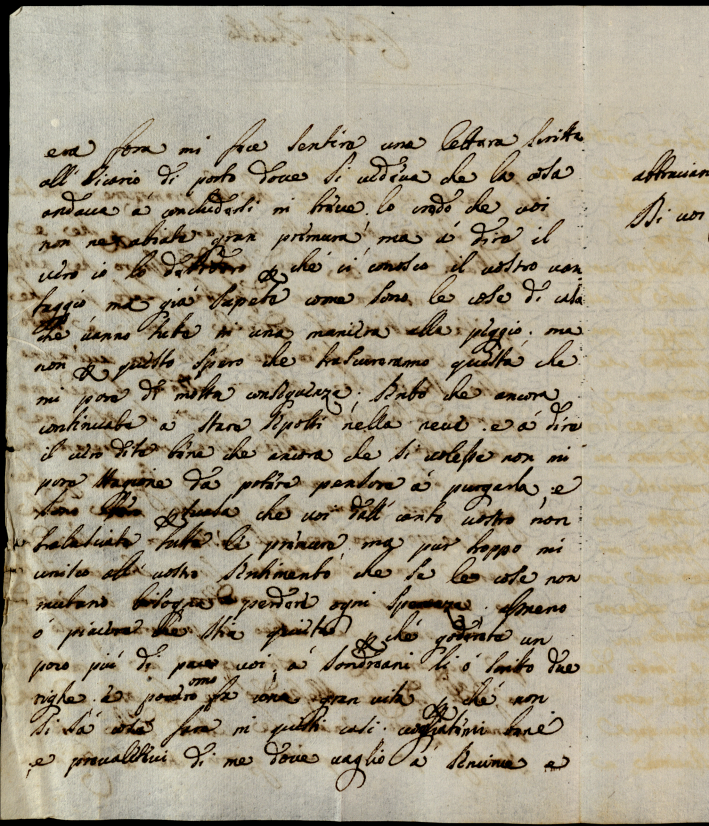 era fora mi fece sentire una lettara scritta
all' Vicario di porto dove si vedeva che la cosa
andava á concludersi in breve. Io credo che voi
non ne abiate gran premura, ma á dire il
vero io lo desidero perché ci conosco il vostro van
taggio ma giá sapete come sono le cose di casa
che vanno tute in una maniera alla peggio. ma
non per questo spero che trascureranno questa che
mi pare di molta conseguenza. Sento che ancora
continuate á stare sepolti nella neve. e á dire
il vero dite bene che ancora che si volesse non mi
pare stagione da potere pensare á purgarla, e
sono persuasa che voi dall' canto vostro non
tralasciate tute le premure ma pur troppo mi
unisco all' vostro sentimento che se le cose non
mutano bisogna perdere ogni speranza. Almeno
ó piacere che stia quieta perché goderete un
poco piú di pace voi. á Sondriani li ó scrito due
righe. è povero omo fa una gran vita perché non
si sá cosa fare in questi casi. vogliatemi bene
e prevaletevi di me dove vaglio á servirvi e
abraccian
Di voi